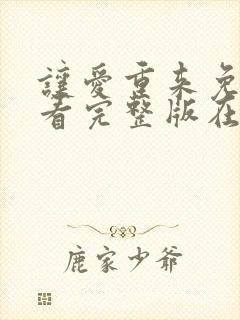 讓愛重来免
看完整版在
鹿家少爷